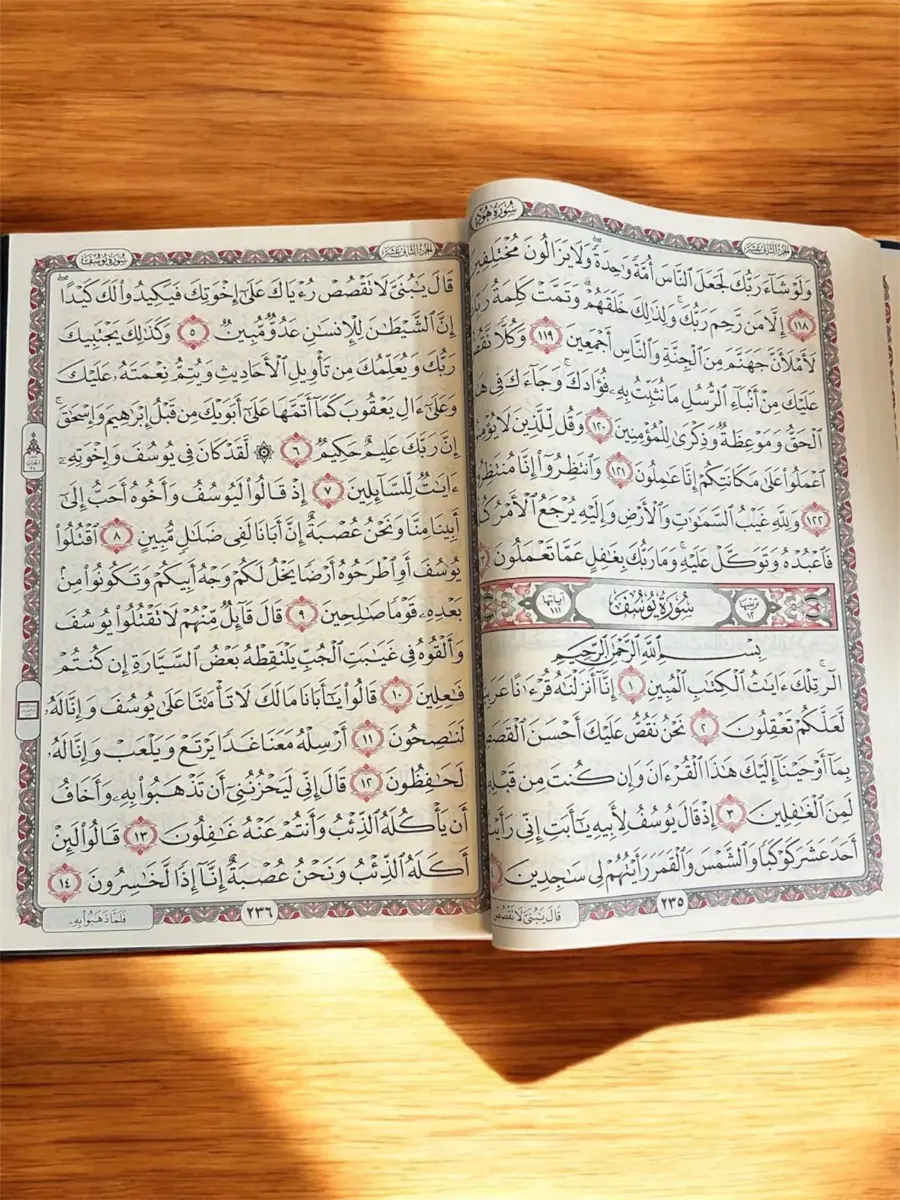 الجزء الثاني عشر
سُورَةُ هُودٍ
وَلَوْ شَآءَ رَبُّكَ لَجَعَلَ ٱلنَّاسَ أُمَّةً وَٰحِدَةً ۖ وَلَا يَزَالُونَ مُخْتَلِفِينَ
١١٨ إِلَّا مَن رَّحِمَ رَبُّكَ ۚ وَلِذَٰلِكَ خَلَقَهُمْ ۗ وَتَمَّتْ كَلِمَةُ
لَأَمْلَأَنَّ جَهَنَّمَ مِنَ ٱلْجِنَّةِ وَٱلنَّاسِ أَجْمَعِينَ ١١٩ وَكُلًّا
عَلَيْكَ مِنْ أَنۢبَآءِ ٱلرُّسُلِ مَا نُثَبِّتُ بِهِۦ فُؤَادَكَ ۚ وَجَآءَكَ فِى
ٱلْحَقُّ وَمَوْعِظَةٌ وَذِكْرَىٰ لِلْمُؤْمِنِينَ ١٢٠ وَقُل لِّلَّذِينَ لَا
ٱعْمَلُوا۟ عَلَىٰ مَكَانَتِكُمْ إِنَّا عَٰمِلُونَ ١٢١ وَٱنتَظِرُوٓا۟ إِنَّا
١٢٢ وَلِلَّهِ غَيْبُ ٱلسَّمَٰوَٰتِ وَٱلْأَرْضِ وَإِلَيْهِ يُرْجَعُ ٱلْأَمْرُ
فَٱعْبُدْهُ وَتَوَكَّلْ عَلَيْهِ ۚ وَمَا رَبُّكَ بِغَٰفِلٍ عَمَّا تَعْمَلُونَ
ترتيبها ١٢ سُورَةُ يُوسُفَ آياتها ١١١
بِسْمِ ٱللَّهِ ٱلرَّحْمَٰنِ ٱلرَّحِيمِ
الٓر ۚ تِلْكَ ءَايَٰتُ ٱلْكِتَٰبِ ٱلْمُبِينِ ١ إِنَّآ أَنزَلْنَٰهُ قُرْءَٰنًا
لَّعَلَّكُمْ تَعْقِلُونَ ٢ نَحْنُ نَقُصُّ عَلَيْكَ أَحْسَنَ ٱلْقَصَصِ
بِمَآ أَوْحَيْنَآ إِلَيْكَ هَٰذَا ٱلْقُرْءَانَ وَإِن كُنتَ مِن قَبْلِهِۦ
لَمِنَ ٱلْغَٰفِلِينَ ٣ إِذْ قَالَ يُوسُفُ لِأَبِيهِ يَٰٓأَبَتِ إِنِّى
أَحَدَ عَشَرَ كَوْكَبًا وَٱلشَّمْسَ وَٱلْقَمَرَ رَأَيْتُهُمْ لِى سَٰجِدِينَ
٢٣٥
قَالَ يَٰبُنَىَّ لَا تَقْصُصْ
الجزء الثاني عشر
سُورَةُ يُوسُفَ
قَالَ يَٰبُنَىَّ لَا تَقْصُصْ رُءْيَاكَ عَلَىٰٓ إِخْوَتِكَ فَيَكِيدُوا۟ لَكَ كَيْدًا ۖ
إِنَّ ٱلشَّيْطَٰنَ لِلْإِنسَٰنِ عَدُوٌّ مُّبِينٌ ٥ وَكَذَٰلِكَ يَجْتَبِيكَ
رَبُّكَ وَيُعَلِّمُكَ مِن تَأْوِيلِ ٱلْأَحَادِيثِ وَيُتِمُّ نِعْمَتَهُۥ عَلَيْكَ
وَعَلَىٰٓ ءَالِ يَعْقُوبَ كَمَآ أَتَمَّهَا عَلَىٰٓ أَبَوَيْكَ مِن قَبْلُ إِبْرَٰهِيمَ وَإِسْحَٰقَ ۚ
إِنَّ رَبَّكَ عَلِيمٌ حَكِيمٌ ٦ ۞ لَّقَدْ كَانَ فِى يُوسُفَ وَإِخْوَتِهِۦٓ
ءَايَٰتٌ لِّلسَّآئِلِينَ ٧ إِذْ قَالُوا۟ لَيُوسُفُ وَأَخُوهُ أَحَبُّ إِلَىٰٓ
أَبِينَا مِنَّا وَنَحْنُ عُصْبَةٌ إِنَّ أَبَانَا لَفِى ضَلَٰلٍ مُّبِينٍ ٨ ٱقْتُلُوا۟
يُوسُفَ أَوِ ٱطْرَحُوهُ أَرْضًا يَخْلُ لَكُمْ وَجْهُ أَبِيكُمْ وَتَكُونُوا۟ مِنۢ
بَعْدِهِۦ قَوْمًا صَٰلِحِينَ ٩ قَالَ قَآئِلٌ مِّنْهُمْ لَا تَقْتُلُوا۟ يُوسُفَ
وَأَلْقُوهُ فِى غَيَٰبَتِ ٱلْجُبِّ يَلْتَقِطْهُ بَعْضُ ٱلسَّيَّارَةِ إِن كُنتُمْ
فَٰعِلِينَ ١٠ قَالُوا۟ يَٰٓأَبَانَا مَا لَكَ لَا تَأْمَ۫نَّا عَلَىٰ يُوسُفَ وَإِنَّا لَهُۥ
لَنَٰصِحُونَ ١١ أَرْسِلْهُ مَعَنَا غَدًا يَرْتَعْ وَيَلْعَبْ وَإِنَّا لَهُۥ
لَحَٰفِظُونَ ١٢ قَالَ إِنِّى لَيَحْزُنُنِىٓ أَن تَذْهَبُوا۟ بِهِۦ وَأَخَافُ
أَن يَأْكُلَهُ ٱلذِّئْبُ وَأَنتُمْ عَنْهُ غَٰفِلُونَ ١٣ قَالُوا۟ لَئِنْ
أَكَلَهُ ٱلذِّئْبُ وَنَحْنُ عُصْبَةٌ إِنَّآ إِذًا لَّخَٰسِرُونَ ١٤
٢٣٦
فَلَمَّا ذَهَبُوا۟ بِهِۦ